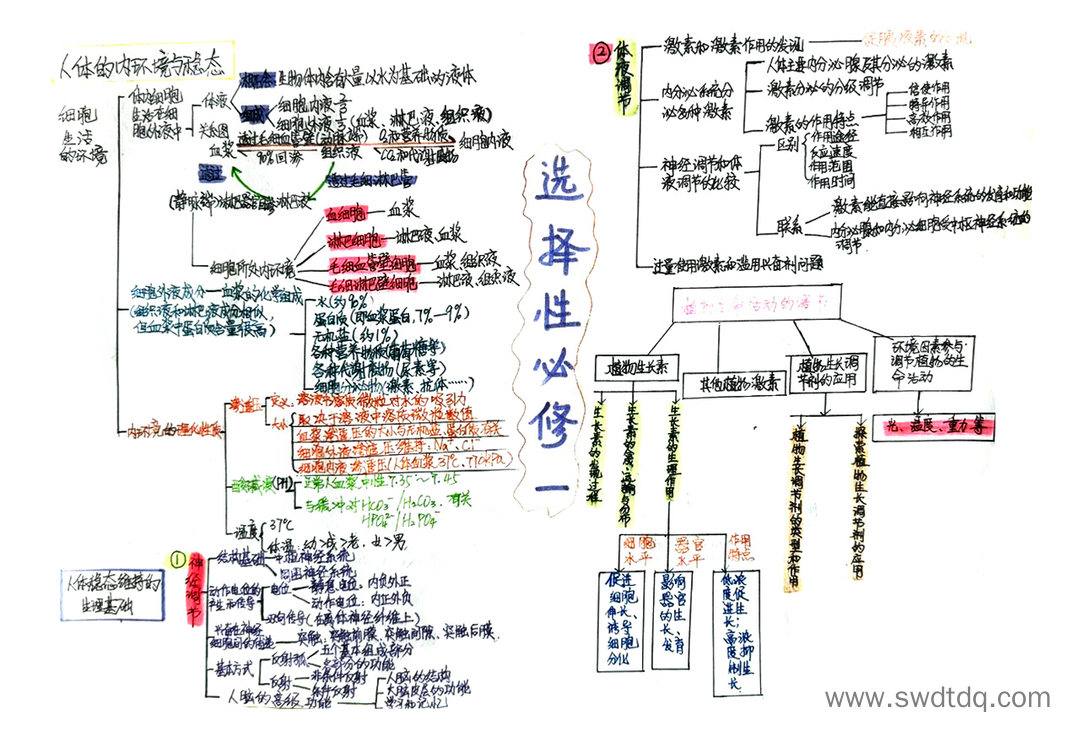 人体的内环境与稳态
细胞
生活
的环境
体内细胞
生活在细
胞外液中
体液
概念:生物体内含有大量以水为基础的液体
组成
细胞内液 2/3
细胞外液 1/3 (血浆、淋巴液、组织液)
关系图
血浆
通过毛细血管壁(动脉端)
90%回渗
组织液
O₂和营养物质
CO₂和代谢废物
细胞内液
通过毛细淋巴管
淋巴液
细胞所处内环境
血细胞—血浆
淋巴细胞—淋巴液、血浆
毛细血管壁细胞—血浆、组织液
毛细淋巴壁细胞—淋巴液、组织液
细胞外液成分—血浆的化学组成
(组织液和淋巴液成分相似,
但血浆中蛋白质含量很高)
水(约90%)
蛋白质(即血浆蛋白,7%~9%)
无机盐(约1%)
各种营养物质(葡萄糖等)
各种代谢废物(尿素等)
细胞分泌物(激素、抗体……)
内环境的理化性质
渗透压
定义:溶液中溶质微粒对水的吸引力
大小
取决于溶液中溶质微粒数值
血浆渗透压的大小与无机盐、蛋白质有关
细胞外液渗透压维持:Na⁺、Cl⁻
细胞内液渗透压(人体血浆37℃、770kPa)
酸碱度(PH)
正常人血浆中性7.35~7.45
与缓冲对HCO₃⁻/H₂CO₃、有关
HPO₄²⁻/H₂PO₄⁻
温度
37℃
体温:幼>成>老,女>男
人体稳态维持的
生理基础
①
神经调节
结构基础
中枢神经系统
周围神经系统
动作电位的
产生和传导
电位
静息电位:内负外正
动作电位:内正外负
双向传导(在离体神经纤维上)
兴奋在神经
细胞间的传递
突触:突触前膜、突触间隙、突触后膜
基本方式
反射弧
五个基本组成部分
各部分的功能
反射
非条件反射
条件反射
人脑的高级功能
人脑的结构
大脑皮层的功能
学习和记忆
选择性必修一
②
体液调节
激素和激素作用的发现
内分泌系统分
泌各种激素
人体主要内分泌腺及其分泌的激素
激素分泌的分级调节
激素的作用特点
信使作用
特异作用
高效作用
相互作用
神经调节和体
液调节的比较
区别
作用途径
反应速度
作用范围
作用时间
联系
激素能直接影响神经系统的发育和功能
内分泌腺和内分泌细胞受中枢神经系统的
调节
过量使用激素和滥用兴奋剂问题
植物生命活动的调节
植物生长素
其他植物激素
植物生长调
节剂的应用
环境因素参与
调节植物的生
命活动
生长素的发现过程
生长素的合成、运输与分布
生长素的生理作用
植物生长调节剂的类型和作用
探索植物生长调节剂的应用
光、温度、重力等
细胞
水平
器官
水平
作用
特点
促进细胞伸长、诱导细胞分化
影响器官的生长、发育
低浓度促进生长;高浓度抑制生长
www.swdtdq.com